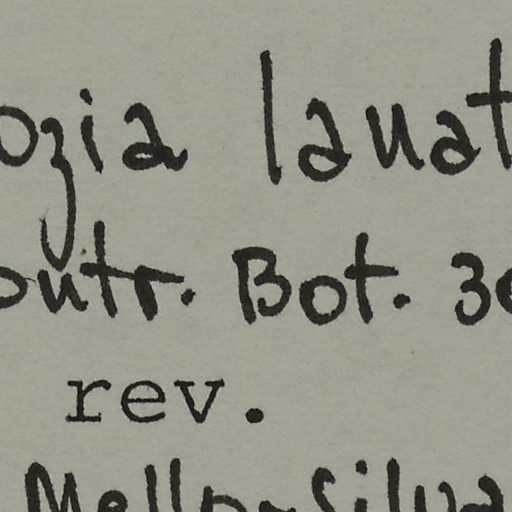 ozia lanat
ontr. Bot. 30
rev.
Mello-Silva